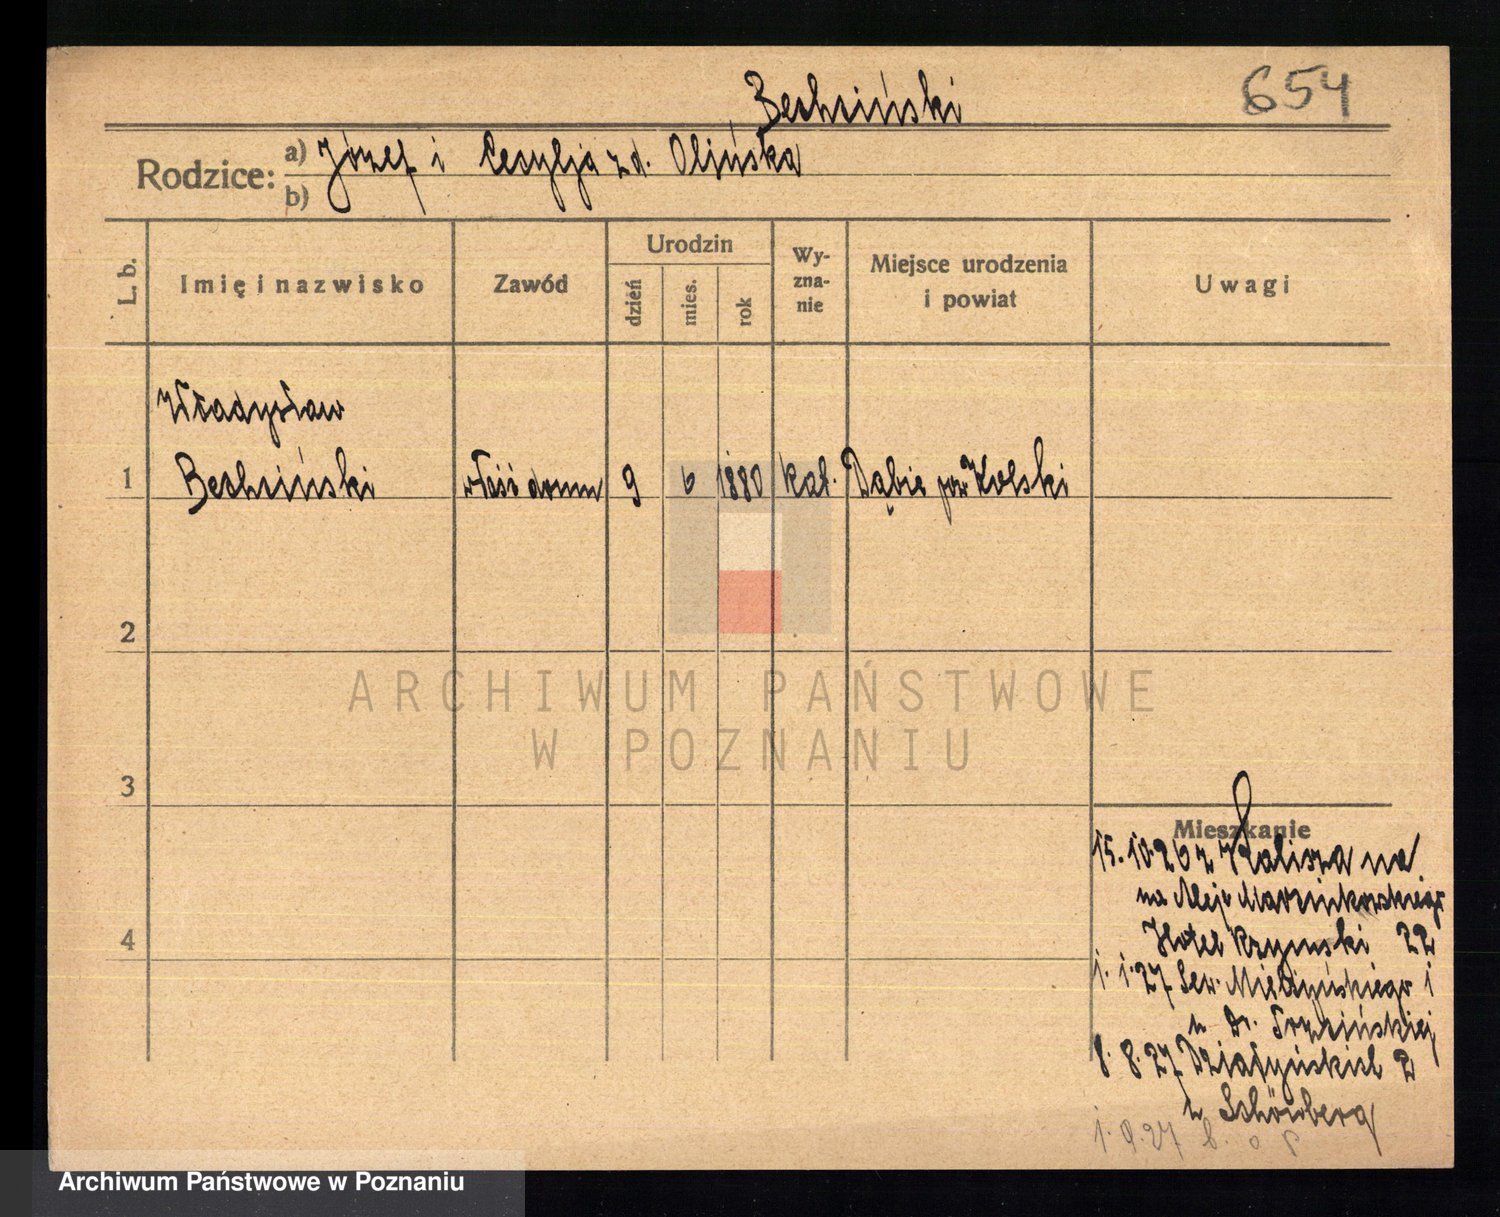 Bechciński
654
Rodzice: a) Józef i Cesylja zd. Olińska
b)
L. b.
Imię i nazwisko
Zawód
Urodzin
dzień
mies.
rok
Wy-
zna-
nie
Miejsce urodzenia
i powiat
Uwagi
Władysław
1 Bechciński właśc domu 9 6 1880 kat. Dąbie pow Kolski
2
3
4
ARCHIWUM PAŃSTWOWE
W POZNANIU
Mieszkanie
15.10.26 z Kalisza na
na Aleje Marcinkowskiego
Hotel Rzymski 22
1.1.27 Sew. Mielżyńskiego 1
u Dr.
8.8.27 Działyńskich 2
u Schönberg
1.9.27
Archiwum Państwowe w Poznaniu